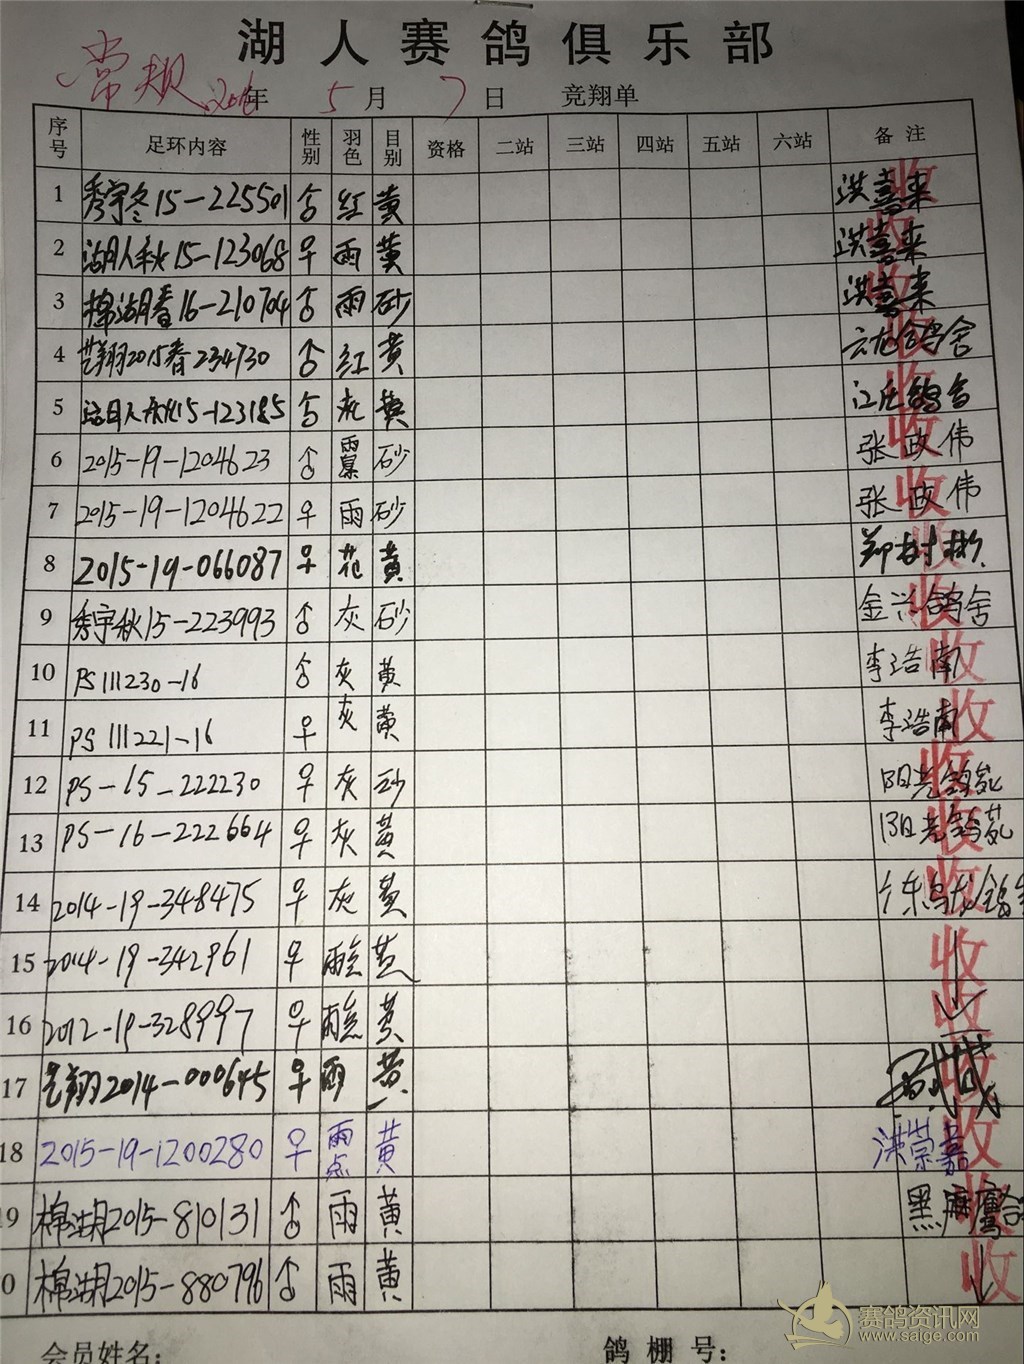 湖人赛鸽俱乐部
常规 年 5 月 7 日 竞翔单
序号 足环内容 性别 羽色 目别 资格 二站 三站 四站 五站 六站 备注
1 秀宇冬15-225501 ♂ 红 黄 洪喜来 收
2 湖人秋15-123068 ♀ 雨 黄 洪喜来 收
3 棉湖春16-210704 ♂ 雨 砂 洪喜来 收
4 翔2015春234730 ♂ 红 黄 云龙鸽舍 收
5 湖人秋15-123185 ♂ 灰 黄 江氏鸽舍 收
6 2015-19-1204623 ♂ 砂 张政伟 收
7 2015-19-1204622 ♀ 雨 砂 张政伟 收
8 2015-19-066087 ♀ 花 黄 郑树彬 收
9 秀宇秋15-223993 ♂ 灰 砂 金兴鸽舍 收
10 PS111230-16 ♂ 灰 黄 李浩南 收
11 PS111221-16 ♀ 灰 黄 李浩南 收
12 PS-15-222230 ♀ 灰 砂 阳光鸽苑 收
13 PS-16-222664 ♀ 灰 黄 阳光鸽苑 收
14 2014-19-348475 ♀ 灰 黄 广东 收
15 2014-19-342961 ♀ 黄 收
16 2012-19-328997 ♀ 黄 收
17 翔2014-000645 ♀ 雨 黄 收
18 2015-19-1200280 ♀ 雨点 黄 洪崇嘉 收
9 棉湖2015-810131 ♂ 雨 黄 黑麻鹰 收
0 棉湖2015-880796 ♂ 雨 黄 收
会员姓名： 鸽棚号：
赛鸽资讯网
www.saige.com